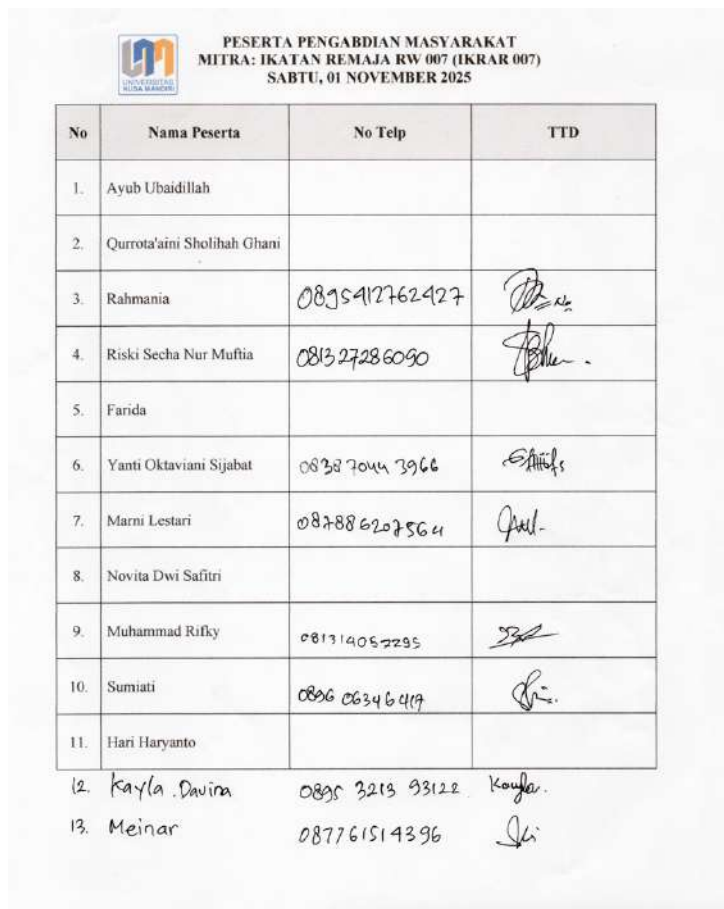 UNIVERSITAS
NUSA MANDIRI
PESERTA PENGABDIAN MASYARAKAT
MITRA: IKATAN REMAJA RW 007 (IKRAR 007)
SABTU, 01 NOVEMBER 2025
No Nama Peserta No Telp TTD
1. Ayub Ubaidillah
2. Qurrota'aini Sholihah Ghani
3. Rahmania 0895412762427
4. Riski Secha Nur Muftia 081327286090
5. Farida
6. Yanti Oktaviani Sijabat 0838 7044 3966
7. Marni Lestari 087886207564
8. Novita Dwi Safitri
9. Muhammad Rifky 081314052295
10. Sumiati 0896 06346419
11. Hari Haryanto
12. Kayla . Davina 0895 3213 93122 Kayla.
13. Meinar 087761514396